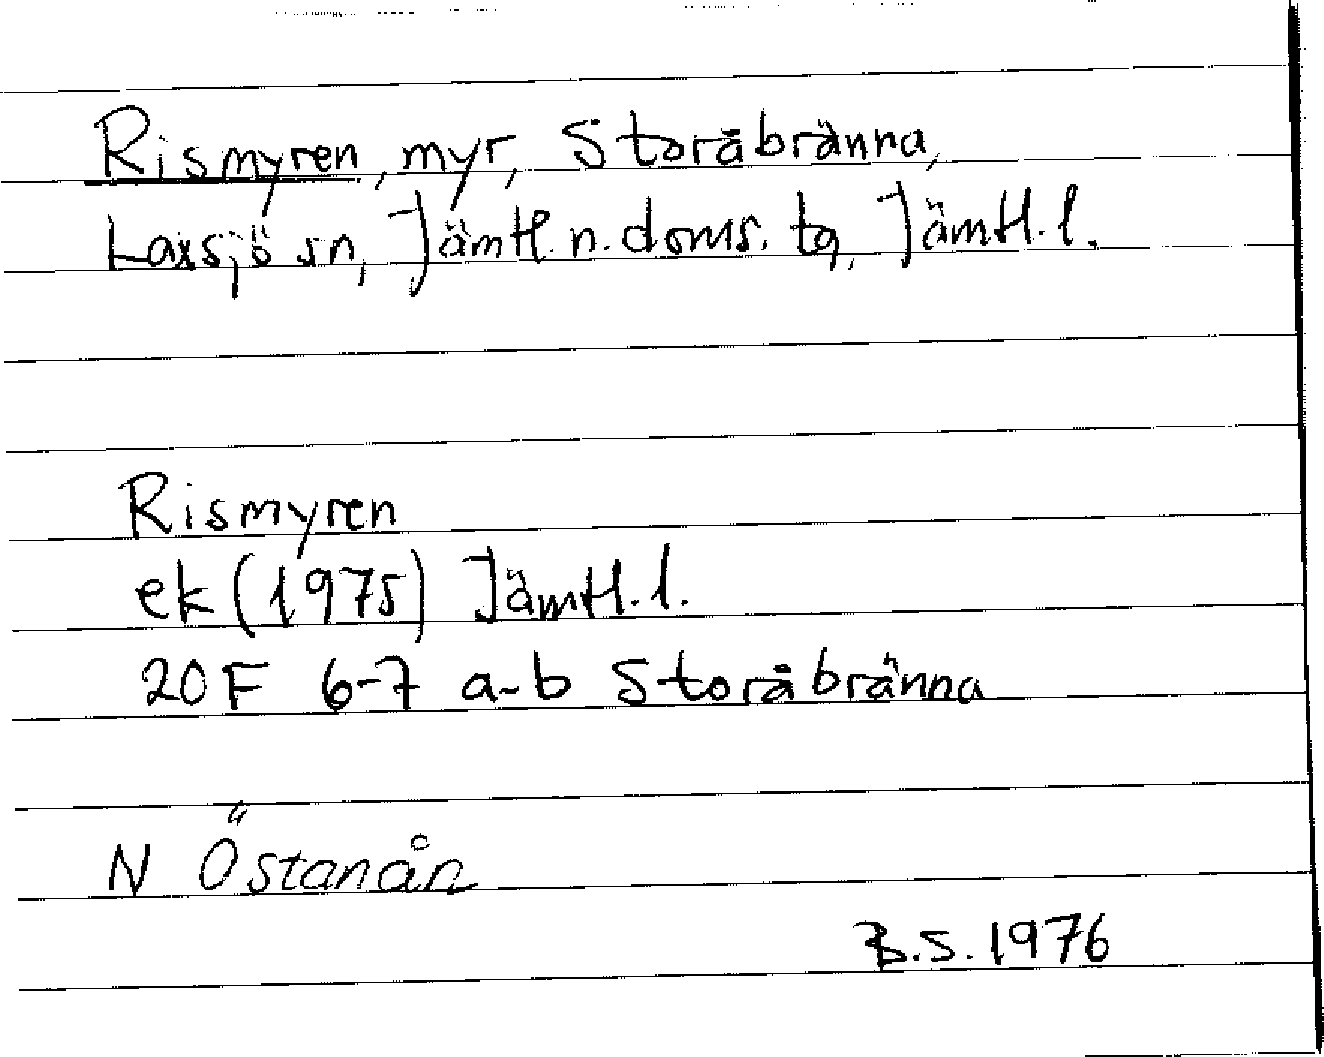 Rismyren, myr, Storåbränna,
Laxsjö sn, Jämtl. n. doms. tg, Jämtl. l.
Rismyren
ek (1975) Jämtl. l.
20F 6-7 a-b Storåbränna
N Östanån
B.S. 1976